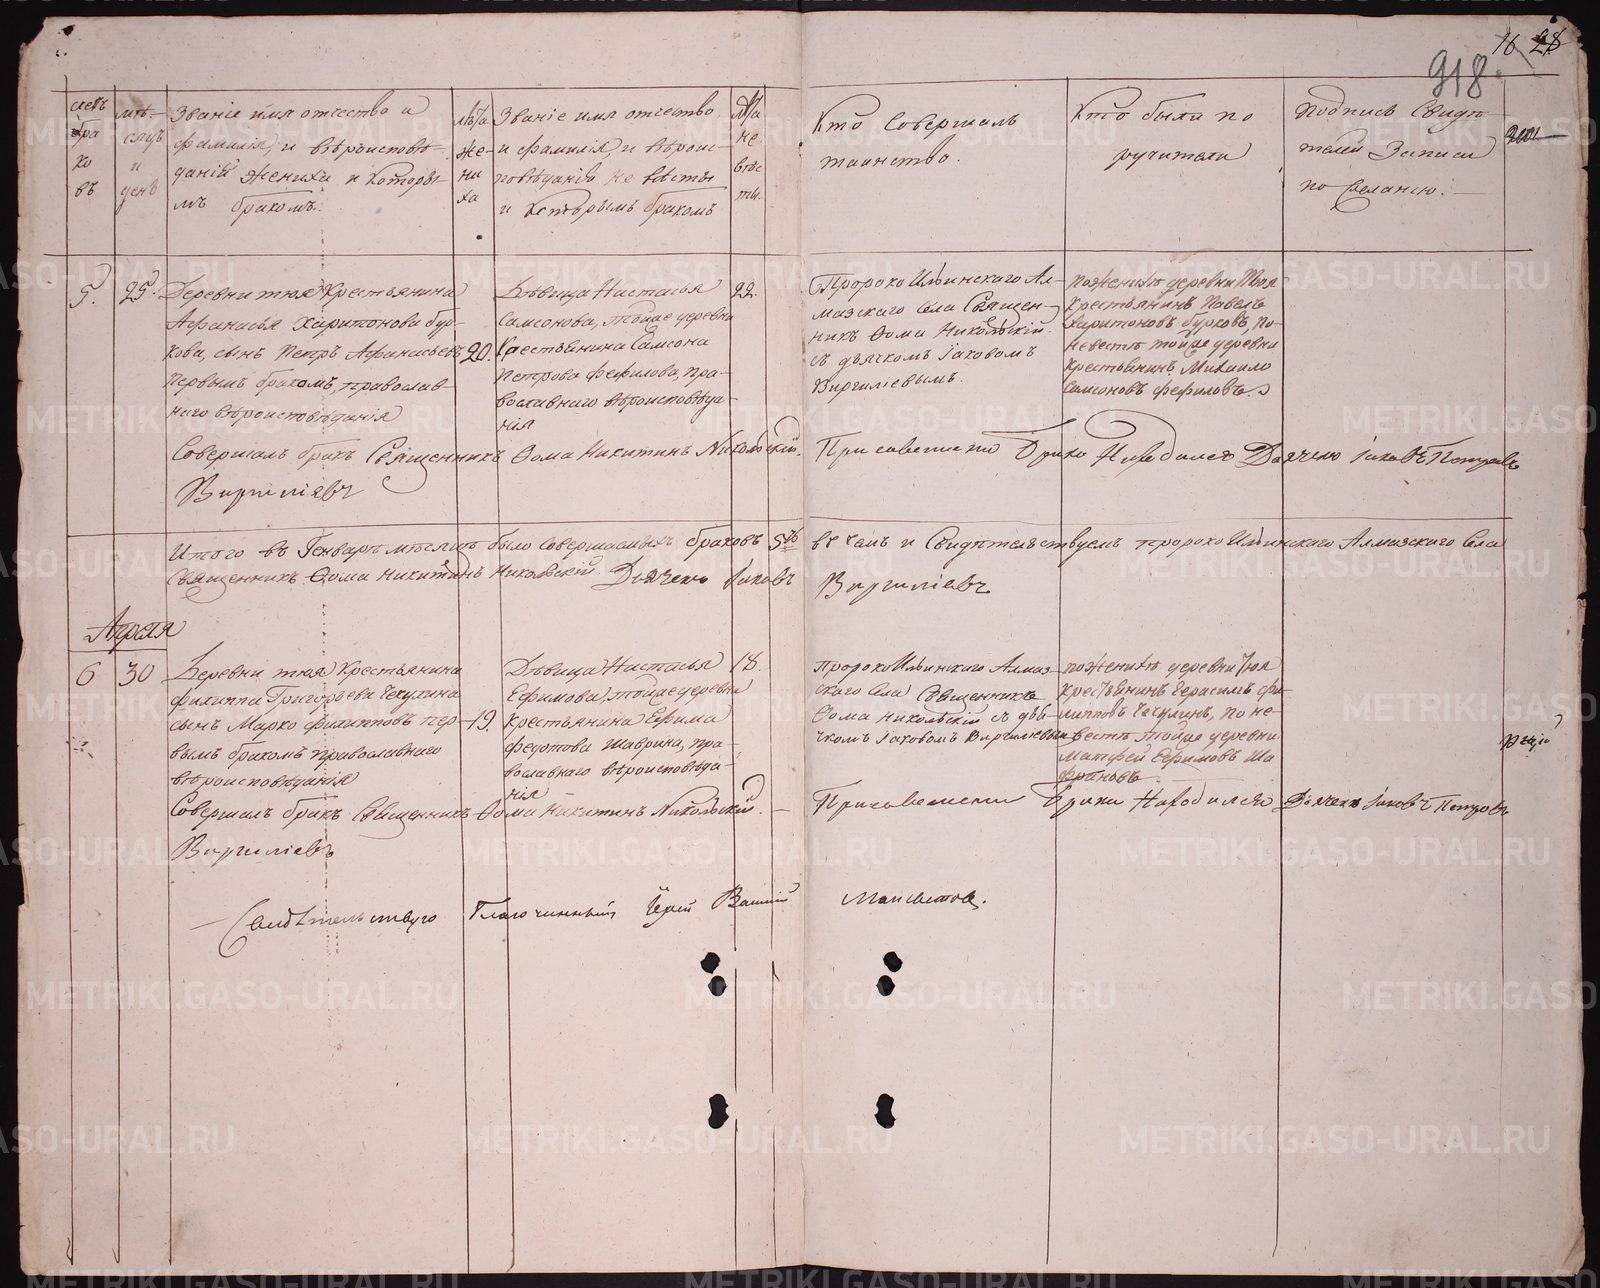 16 28
918
счетъ бра ко въ
мѣ- сяцъ и день
Званіе имя отчество и
фамилія, и вѣроисповѣ-
даній жениха и которы-
мъ бракомъ.
лѣта же- ни ха
Званіе имя отчество
и фамилія, и вѣроис-
повѣданія не вѣсты
и которымъ бракомъ
лѣта не вѣс ты.
Кто совершалъ
таинство.
Кто были по
ручители
подпись свидѣ
телей записи
по желанію.
5. 25.
Деревни тюя Крестьянина
Афанасья Харитонова бур-
кова, сынъ Петръ Афанасьевъ 20.
первымъ бракомъ, православ
наго вѣроисповѣданія
Дѣвица Настасья 22.
Самсонова, тойже деревни
Крестьянина Самсона
Петрова Фефилова, пра-
вославнаго вѣроисповѣда-
нія
Пророко Ильинскаго Ал-
мазскаго села Священ-
никъ Ѳома Никольскій.
съ дьячкомъ Іаковомъ
Виргиліевымъ.
по женихѣ деревни Тюя
Крестьянинъ Павелъ
Харитоновъ бурковъ, по-
невестѣ тойже деревни
Крестьянинъ Михайло
Самсоновъ Фефиловъ.
Совершалъ бракъ Священникъ Ѳома Никитинъ Никольскій.
При совершении брака находился Дьячекъ Іаковъ Петровъ
Виргиліевъ
Итого въ Генварѣ мѣсяцѣ было совершаемыхъ браковъ 5ть
въ чемъ и Свидѣтельствуемъ пророко Ильинскаго Алмазскаго села
Священникъ Ѳома Никитинъ Никольскій. Дьячекъ Іаковъ
Виргиліевъ
Апреля
6 30
Деревни тюя Крестьянина
Филиппа Григорьева Чекулина
сынъ Марко Филипповъ пер- 19.
вымъ бракомъ православнаго
вѣроисповѣданія
Дѣвица Настасья 18.
Ефимова, тойже деревни
крестьянина Ефима
Федотова Шаврина, пра-
вославнаго вѣроисповѣда-
нія
Пророко Ильинскаго Алмаз-
скаго села Священникъ
Ѳома Никольскій съ дья-
чкомъ Іаковомъ Виргиліевымъ
по женихѣ деревни Тюя
крестьянинъ Герасимъ Фи-
липповъ Чекулинъ, по не-
вестѣ тойже деревни
Матфей Ефимовъ Ша
Совершалъ бракъ Священникъ Ѳома Никитинъ Никольскій.
При совершении брака находился Дьячекъ Іаковъ Петровъ
Виргиліевъ
Свидѣтельствую Благочинный Іерей
METRIKI.GASO-URAL.RU